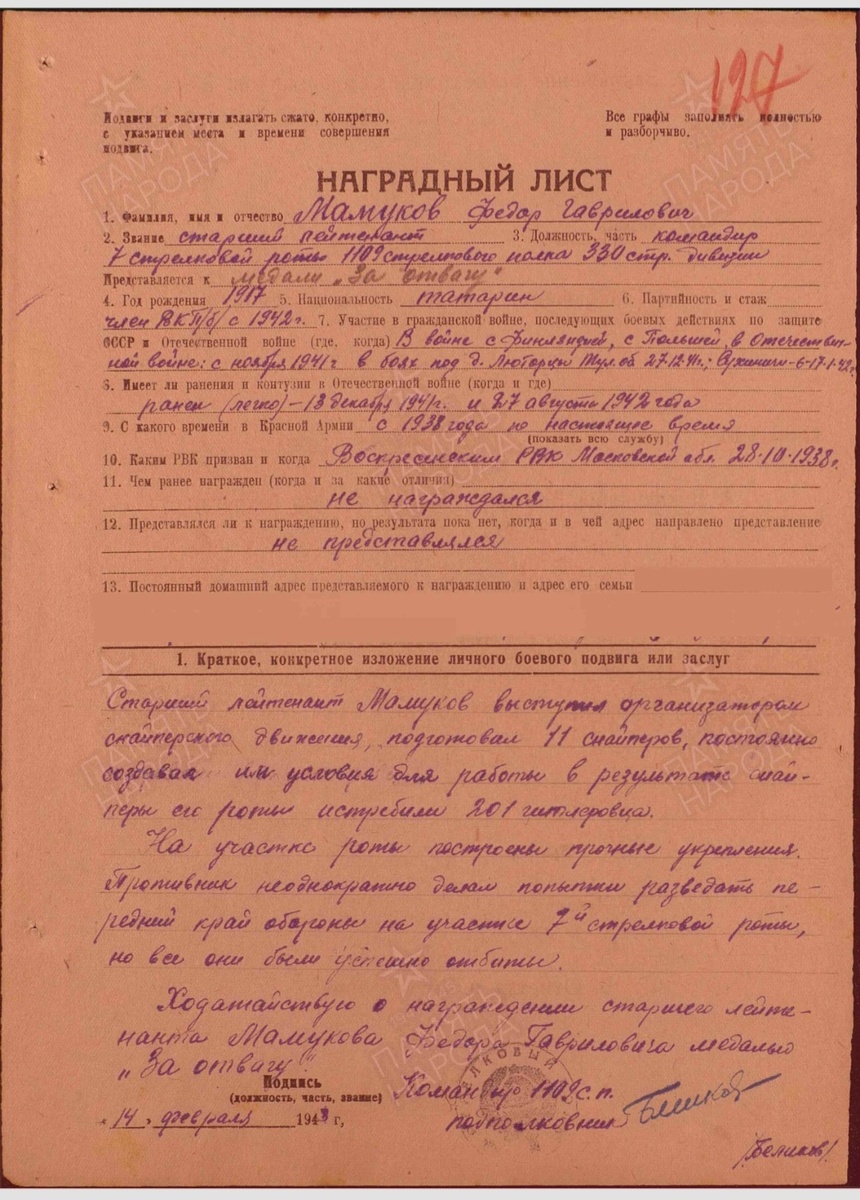 127
Подвиги и заслуги излагать сжато, конкретно,
с указанием места и времени совершения
подвига.
Все графы заполнять полностью
и разборчиво.
НАГРАДНЫЙ ЛИСТ
1. Фамилия, имя и отчество Мамуков Федор Гаврилович
2. Звание старший лейтенант 3. Должность, часть командир
7 стрелковой роты 1109 стрелкового полка 330 стр. дивизии
Представляется к медали „За отвагу"
4. Год рождения 1917 5. Национальность татарин 6. Партийность и стаж
член ВКП/б/ с 1942 г. 7. Участие в гражданской войне, последующих боевых действиях по защите
СССР и Отечественной войне (где, когда) В войне с Финляндией, с Польшей, в Отечествен-
ной войне: с ноября 1941 г в боях под д. Люторцы Тул. об 27.12.41 г.; Сухиничи-6-17.1.42 г.
8. Имеет ли ранения и контузии в Отечественной войне (когда и где)
ранен (легко) - 13 декабря 1941 г. и 27 августа 1942 года
9. С какого времени в Красной Армии с 1938 года по настоящее время
(показать всю службу)
10. Каким РВК призван и когда Воскресенским РВК Московской обл. 28.10.1938 г.
11. Чем ранее награжден (когда и за какие отличия)
не награждался
12. Представлялся ли к награждению, но результата пока нет, когда и в чей адрес направлено представление
не представлялся
13. Постоянный домашний адрес представляемого к награждению и адрес его семьи
1. Краткое, конкретное изложение личного боевого подвига или заслуг
Старший лейтенант Мамуков выступил организатором
снайперского движения, подготовил 11 снайперов, постоянно
создавал им условия для работы в результате снай-
перы его роты истребили 201 гитлеровца.
На участке роты построены прочные укрепления.
Противник неоднократно делал попытки разведать пе-
редний край обороны на участке 7й стрелковой роты,
но все они были успешно отбиты.
Ходатайствую о награждении старшего лейте-
нанта Мамукова Федора Гавриловича медалью
„За отвагу".
Подпись
(должность, часть, звание)
Командир 1109 с. п.
подполковник
„14„ февраля 1943 г,
/Беликов/
ПАМЯТЬ НАРОДА